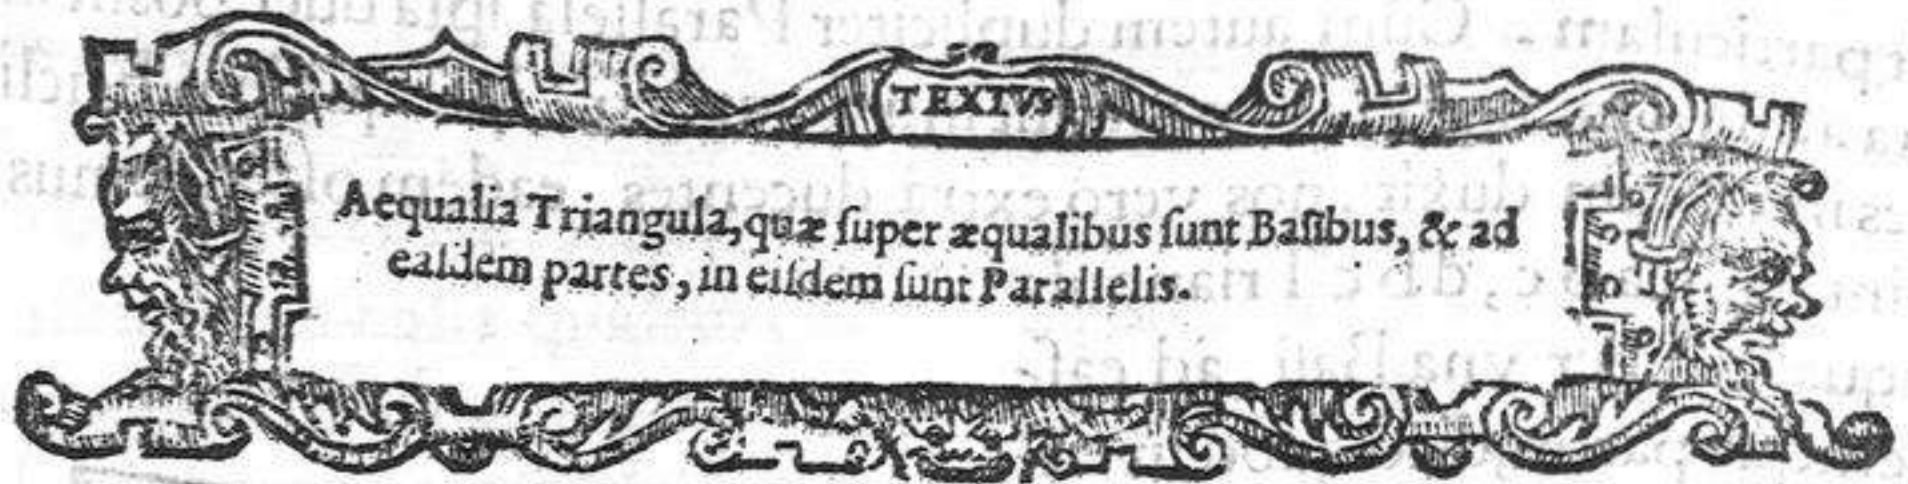 TEXTVS
Aequalia Triangula, quæ ſuper æqualibus ſunt Baſibus, & ad
eaſdem partes, in eiſdem ſunt Parallelis.